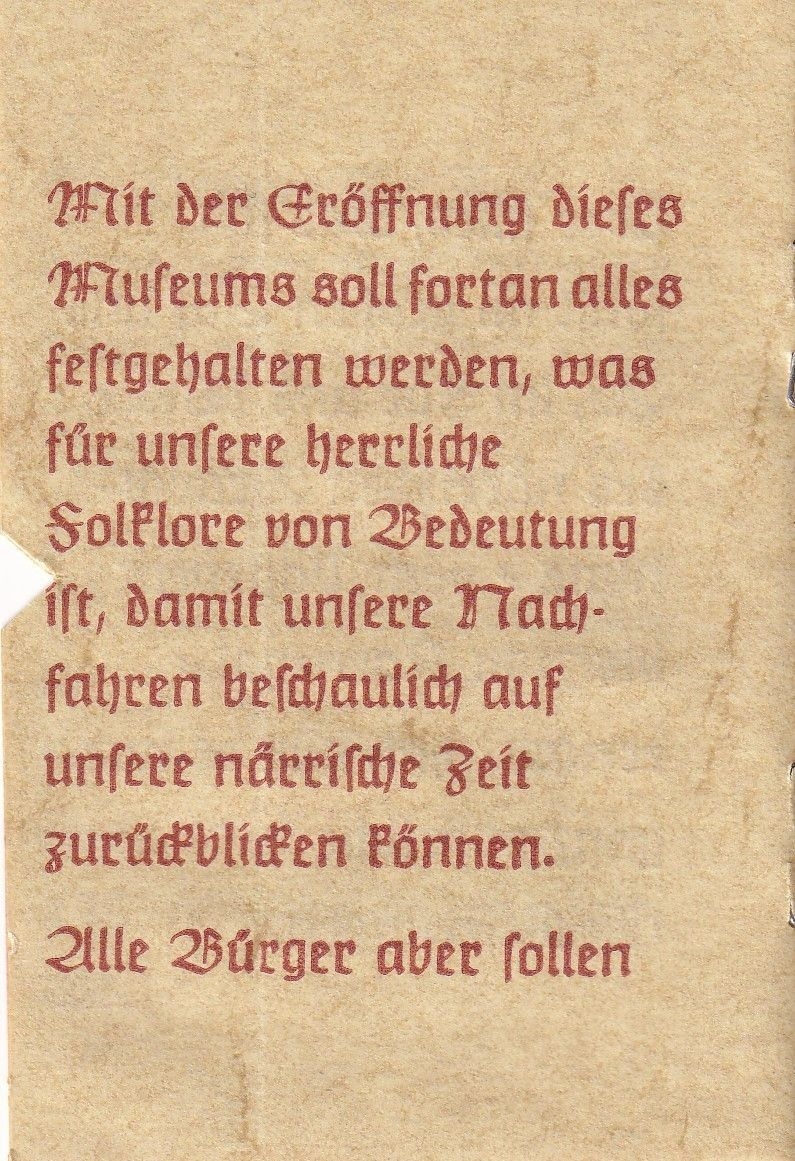 Mit der Eröffnung dieſes
Muſeums soll fortan alles
feſtgehalten werden, was
für unſere herrliche
Folklore von Bedeutung
iſt, damit unſere Nach-
fahren beſchaulich auf
unſere närriſche Zeit
zurückblicken können.
Alle Bürger aber ſollen